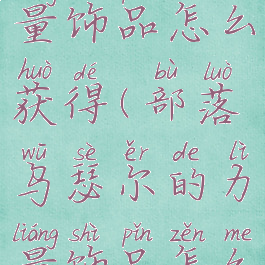 量饰品怎么
huò dé bù luò
获得(部落
wū sè ěr de lì
乌瑟尔的力
liáng shì pǐn zěn me
量饰品怎么